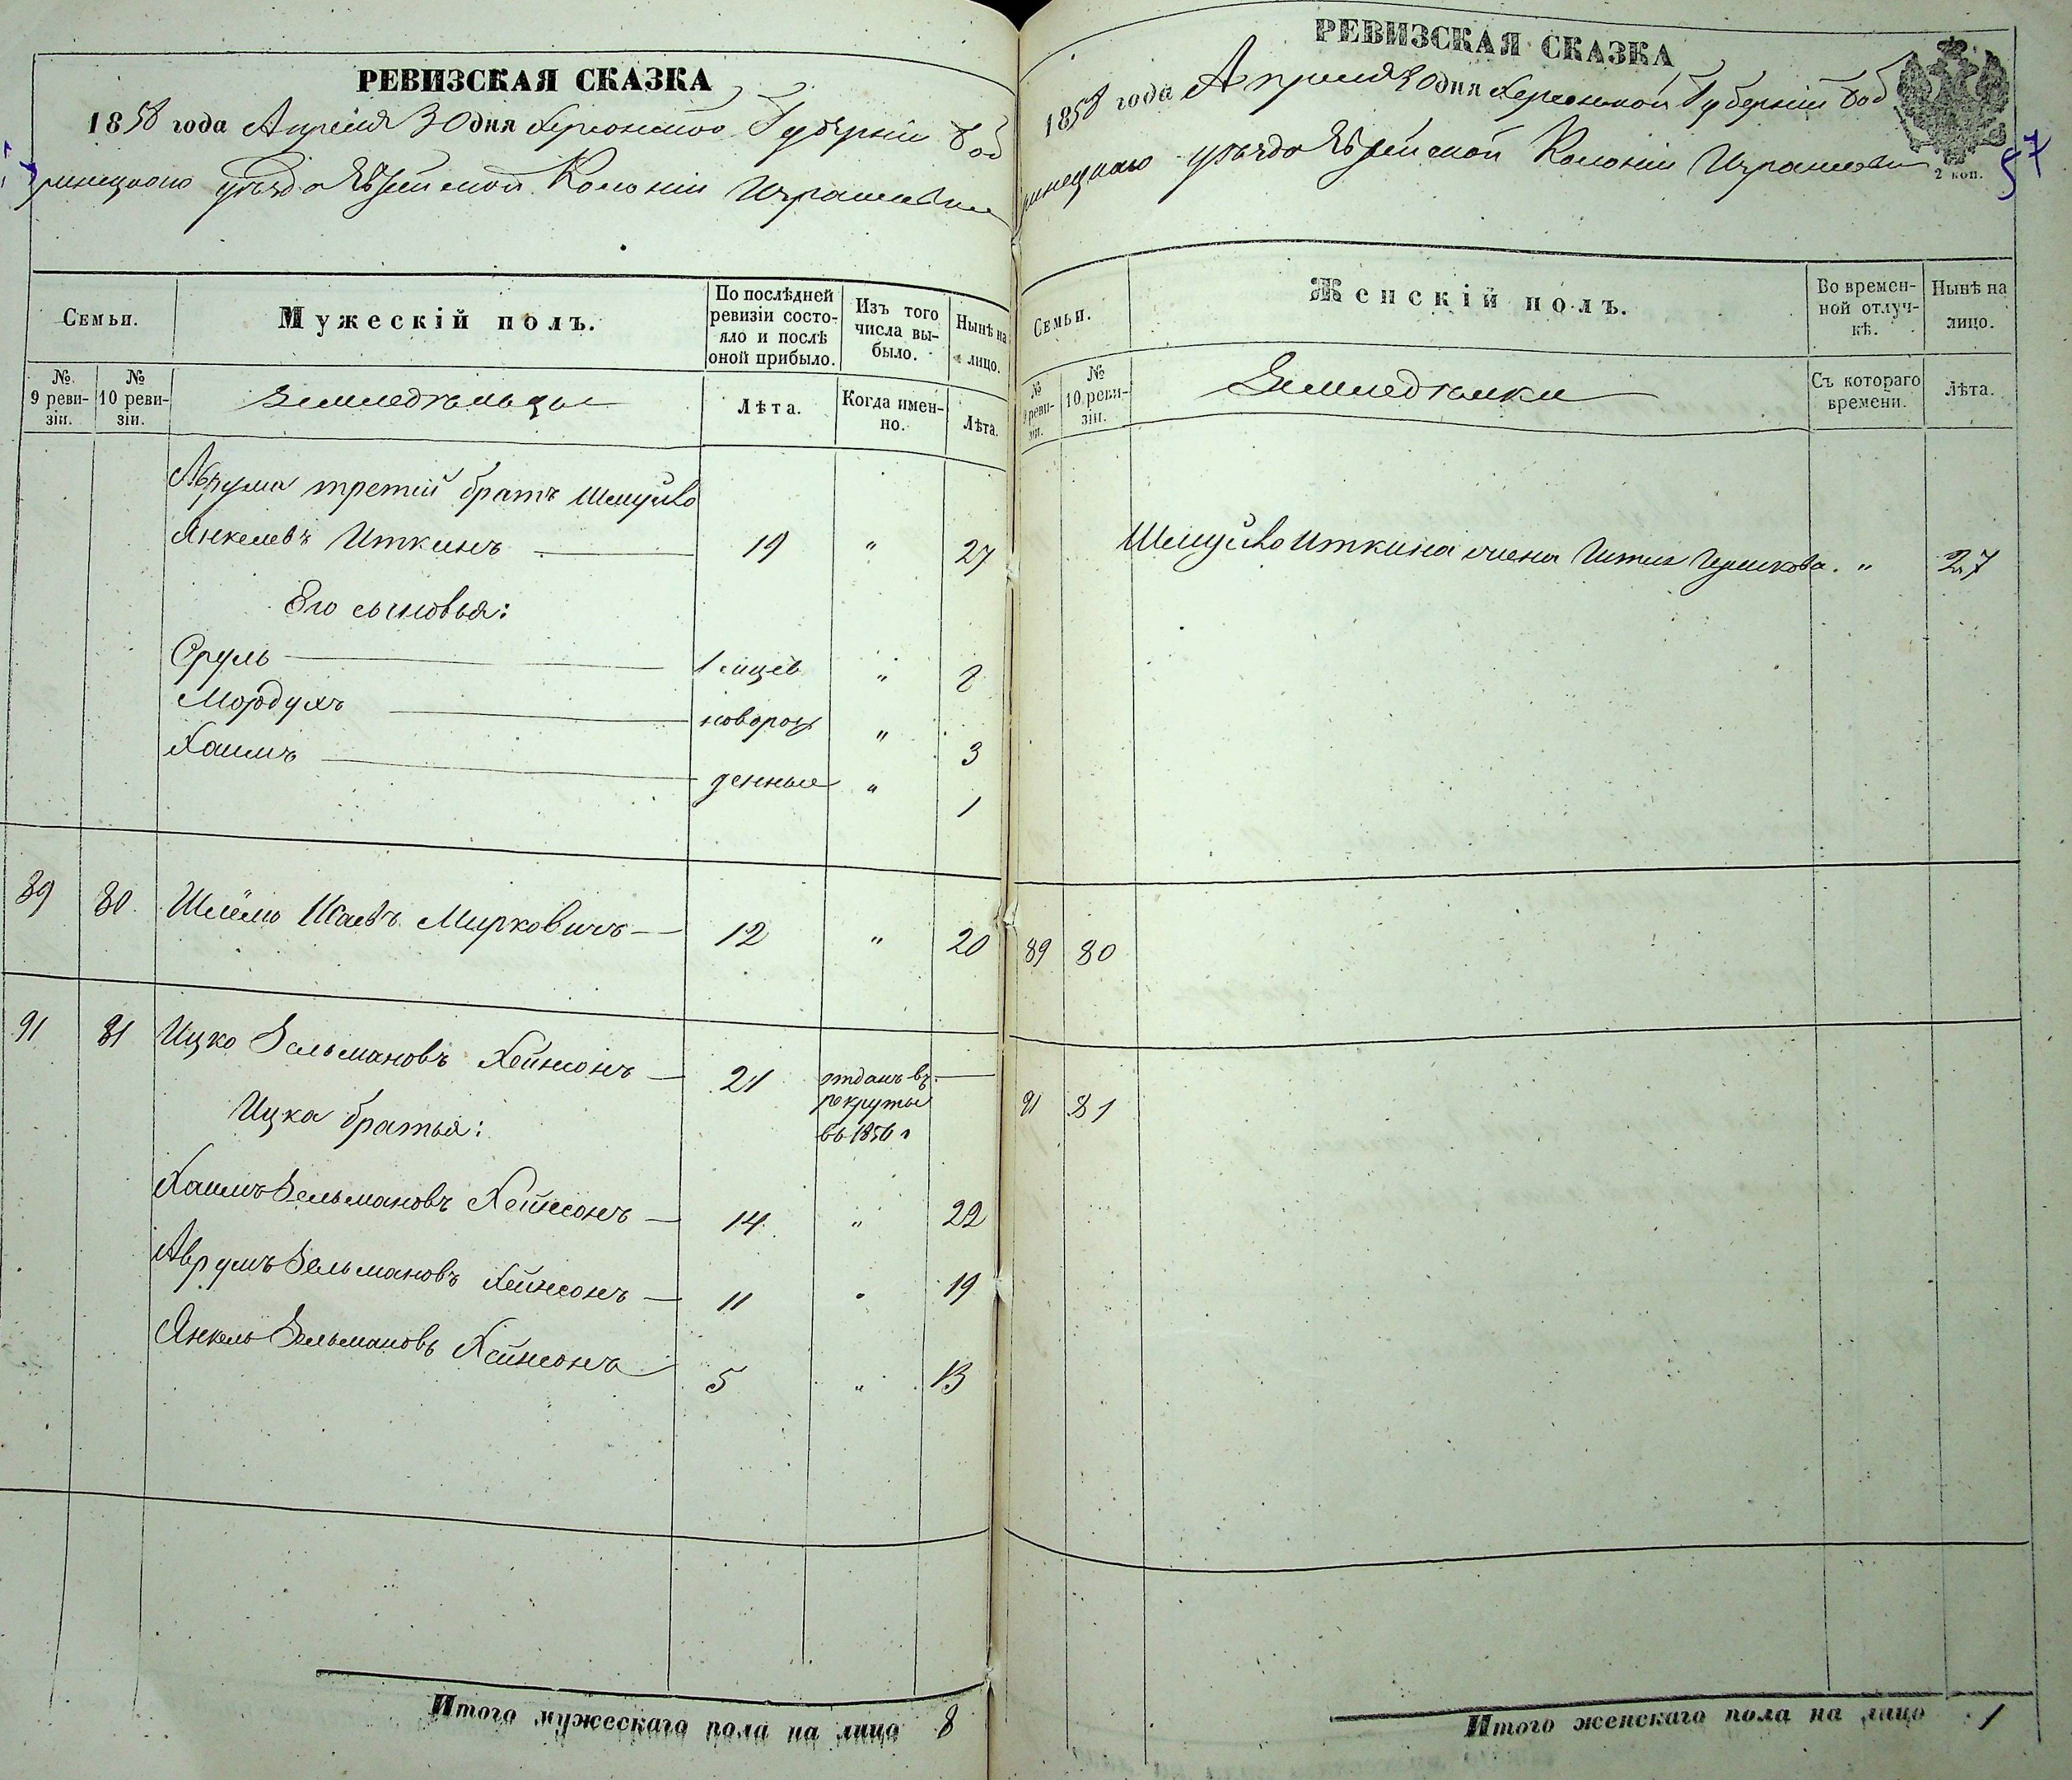 РЕВИЗСКАЯ СКАЗКА
1858 года Апреля 30 дня Херсонской Губерніи Боб
ринецкаго уѣзда Еврейской Колоніи Израилевки
Семьи.
Мужескій полъ.
По послѣдней ревизіи состояло и послѣ оной прибыло.
Изъ того числа выбыло.
Нынѣ на лицо.
№ 9 ревизіи.
№ 10 ревизіи.
Земледѣльцы
Лѣта.
Когда именно.
Лѣта.
Аврума третій братъ Шмуйло
Янкелевъ Иткинъ — 19 " 27
Его сыновья:
Сруль — 1 мцев " 8
Мордухъ — новорож " 3
Хаимъ — денные " 1
89 80 Шлёмо Шаевъ Мирковичъ — 12 " 20
91 81 Ицко Зельмановъ Хейнсонъ — 21 отданъ въ —
рекруты
въ 1856 г
Ицка братья:
Хаимъ Зельмановъ Хейнсонъ — 14 " 22
Аврумъ Зельмановъ Хейнсонъ — 11 " 19
Янкель Зельмановъ Хейнсонъ 5 " 13
Итого мужескаго пола на лицо 8
РЕВИЗСКАЯ СКАЗКА
1858 года Апреля 30 дня Херсонской Губерніи Боб
ринецкаго уѣзда Еврейской Колоніи Израилевки
2 коп.
57
Семьи.
Женскій полъ.
Во временной отлучкѣ.
Нынѣ на лицо.
№ 9 ревизіи.
№ 10 ревизіи.
Земледѣлки
Съ котораго времени.
Лѣта.
Шмуйло Иткина жена " 27
89 80
91 81
Итого женскаго пола на лицо 1